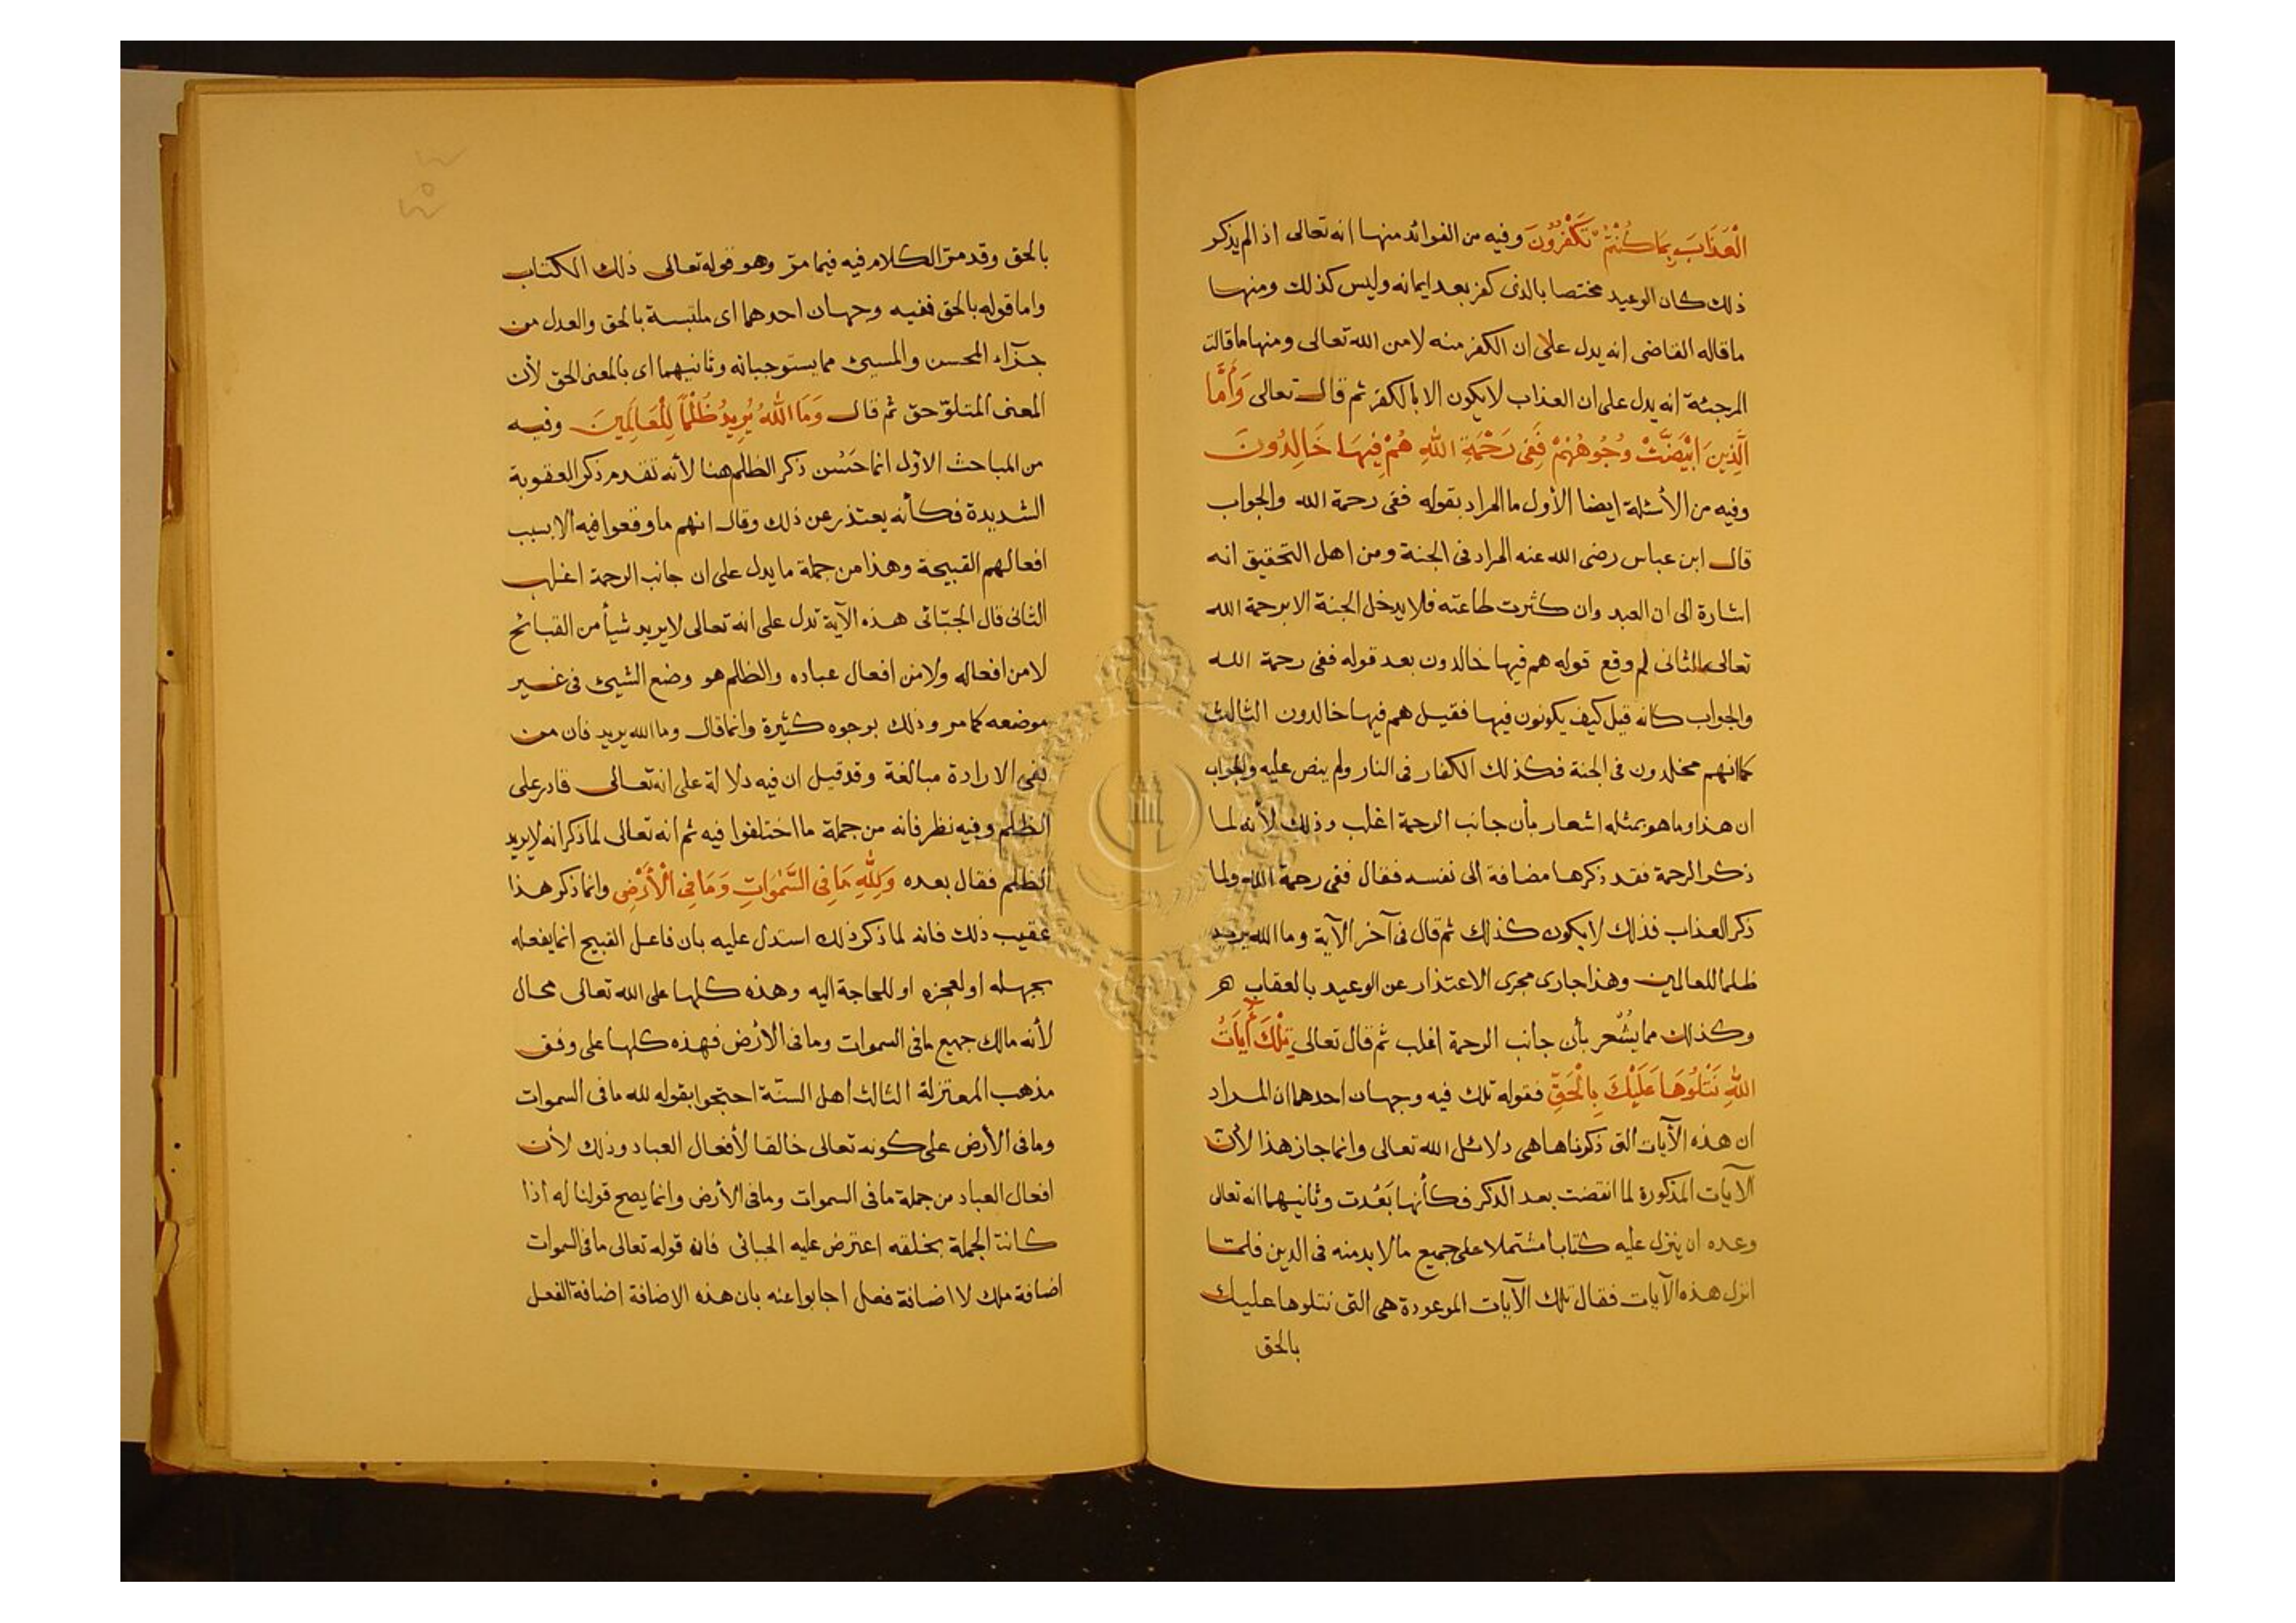 الْعَذَابَ بِمَا كُنْتُمْ تَكْفُرُونَ وفيه من الفوائد منها انه تعالى اذا لم يذكر
ذلك كان الوعيد مختصا بالذى كفر بعد ايمانه وليس كذلك ومنها
ما قاله القاضى انه يدل على ان الكفر منه لا من الله تعالى ومنها ما قالت
المرجئة انه يدل على ان العذاب لا يكون الا بالكفر ثم قال تعالى وَأَمَّا
الَّذِينَ ابْيَضَّتْ وُجُوهُهُمْ فَفِى رَحْمَةِ اللهِ هُمْ فِيهَا خَالِدُونَ
وفيه من الأسئلة ايضا الأول ما المراد بقوله ففى رحمة الله والجواب
قال ابن عباس رضى الله عنه المراد فى الجنة ومن اهل التحقيق انه
اشارة الى ان العبد وان كثرت طاعته فلا يدخل الجنة الا برحمة الله
تعالى الثانى لم وقع قوله هم فيها خالدون بعد قوله ففى رحمة الله
والجواب كانه قيل كيف يكونون فيها فقيل هم فيها خالدون الثالث
كما انهم مخلدون فى الجنة فكذلك الكفار فى النار ولم ينص عليه والجواب
ان هذا وما هو بمثله اشعار بأن جانب الرحمة اغلب وذلك لأنه لما
ذكر الرحمة فقد ذكرها مضافة الى نفسه فقال ففى رحمة الله ولما
ذكر العذاب فذلك لا يكون كذلك ثم قال فى آخر الآية وما الله يريد
ظلما للعالمين وهذا جارى مجرى الاعتذار عن الوعيد بالعقاب
وكذلك مما يُشْعر بأن جانب الرحمة اغلب ثم قال تعالى تِلْكَ أَيَاتُ
اللهِ نَتْلُوهَا عَلَيْكَ بِالْحَقِّ فقوله تلك فيه وجهان احدهما ان المراد
ان هذه الآيات التى ذكرناها هى دلائل الله تعالى وانما جاز هذا لأن
الآيات المذكورة لما انقضت بعد الذكر فكأنها بَعُدت وثانيهما انه تعالى
وعده ان ينزل عليه كتابا مشتملا على جميع ما لا بد منه فى الدين فلما
انزل هذه الآيات فقال تلك الآيات الموعودة هى التى نتلوها عليك
بالحق
بالحق وقد مرّ الكلام فيه فيما مرّ وهو قوله تعالى ذلك الكتاب
واما قوله بالحق ففيه وجهان احدهما اى ملتبسة بالحق والعدل من
جزآء المحسن والمسيئ مما يستوجبانه وثانيهما اى بالمعنى الحق لأن
المعنى المتلوّ حق ثم قال وَمَا اللهُ يُرِيدُ ظُلْمًا لِلْعَالَمِينَ وفيه
من المباحث الاوّل انما حَسُن ذكر الظلم هنا لأنه تقدم ذكر العقوبة
الشديدة فكأنه يعتذر عن ذلك وقال انهم ما وقعوا فيه الا بسبب
افعالهم القبيحة وهذا من جملة ما يدل على ان جانب الرحمة اغلب
الثانى قال الجبّائى هذه الآية تدل على انه تعالى لا يريد شيأ من القبائح
لا من افعاله ولا من افعال عباده والظلم هو وضع الشيئ فى غير
موضعه كما مر وذلك بوجوه كثيرة وانما قال وما الله يريد فان من
نفى الارادة مبالغة وقد قيل ان فيه دلالة على انه تعالى قادر على
الظلم وفيه نظر فانه من جملة ما اختلفوا فيه ثم انه تعالى لما ذكر انه لا يريد
الظلم فقال بعده وَلِلّٰهِ مَا فِى السَّمٰوَاتِ وَمَا فِى الْأَرْضِ وانما ذكر هذا
عقيب ذلك فانه لما ذكر ذلك استدل عليه بان فاعل القبيح انما يفعله
بجهله او لعجزه او للحاجة اليه وهذه كلها على الله تعالى محال
لأنه مالك جميع ما فى السموات وما فى الأرض فهذه كلها على وفق
مذهب المعتزلة الثالث اهل السنّة احتجوا بقوله لله ما فى السموات
وما فى الأرض على كونه تعالى خالقا لأفعال العباد وذلك لأن
افعال العباد من جملة ما فى السموات وما فى الأرض وانما يصح قولنا له اذا
كانت الجملة بخلقه اعترض عليه الجبائى فان قوله تعالى ما فى السموات
اضافة ملك لا اضافة فعل اجابوا عنه بان هذه الاضافة اضافة الفعل